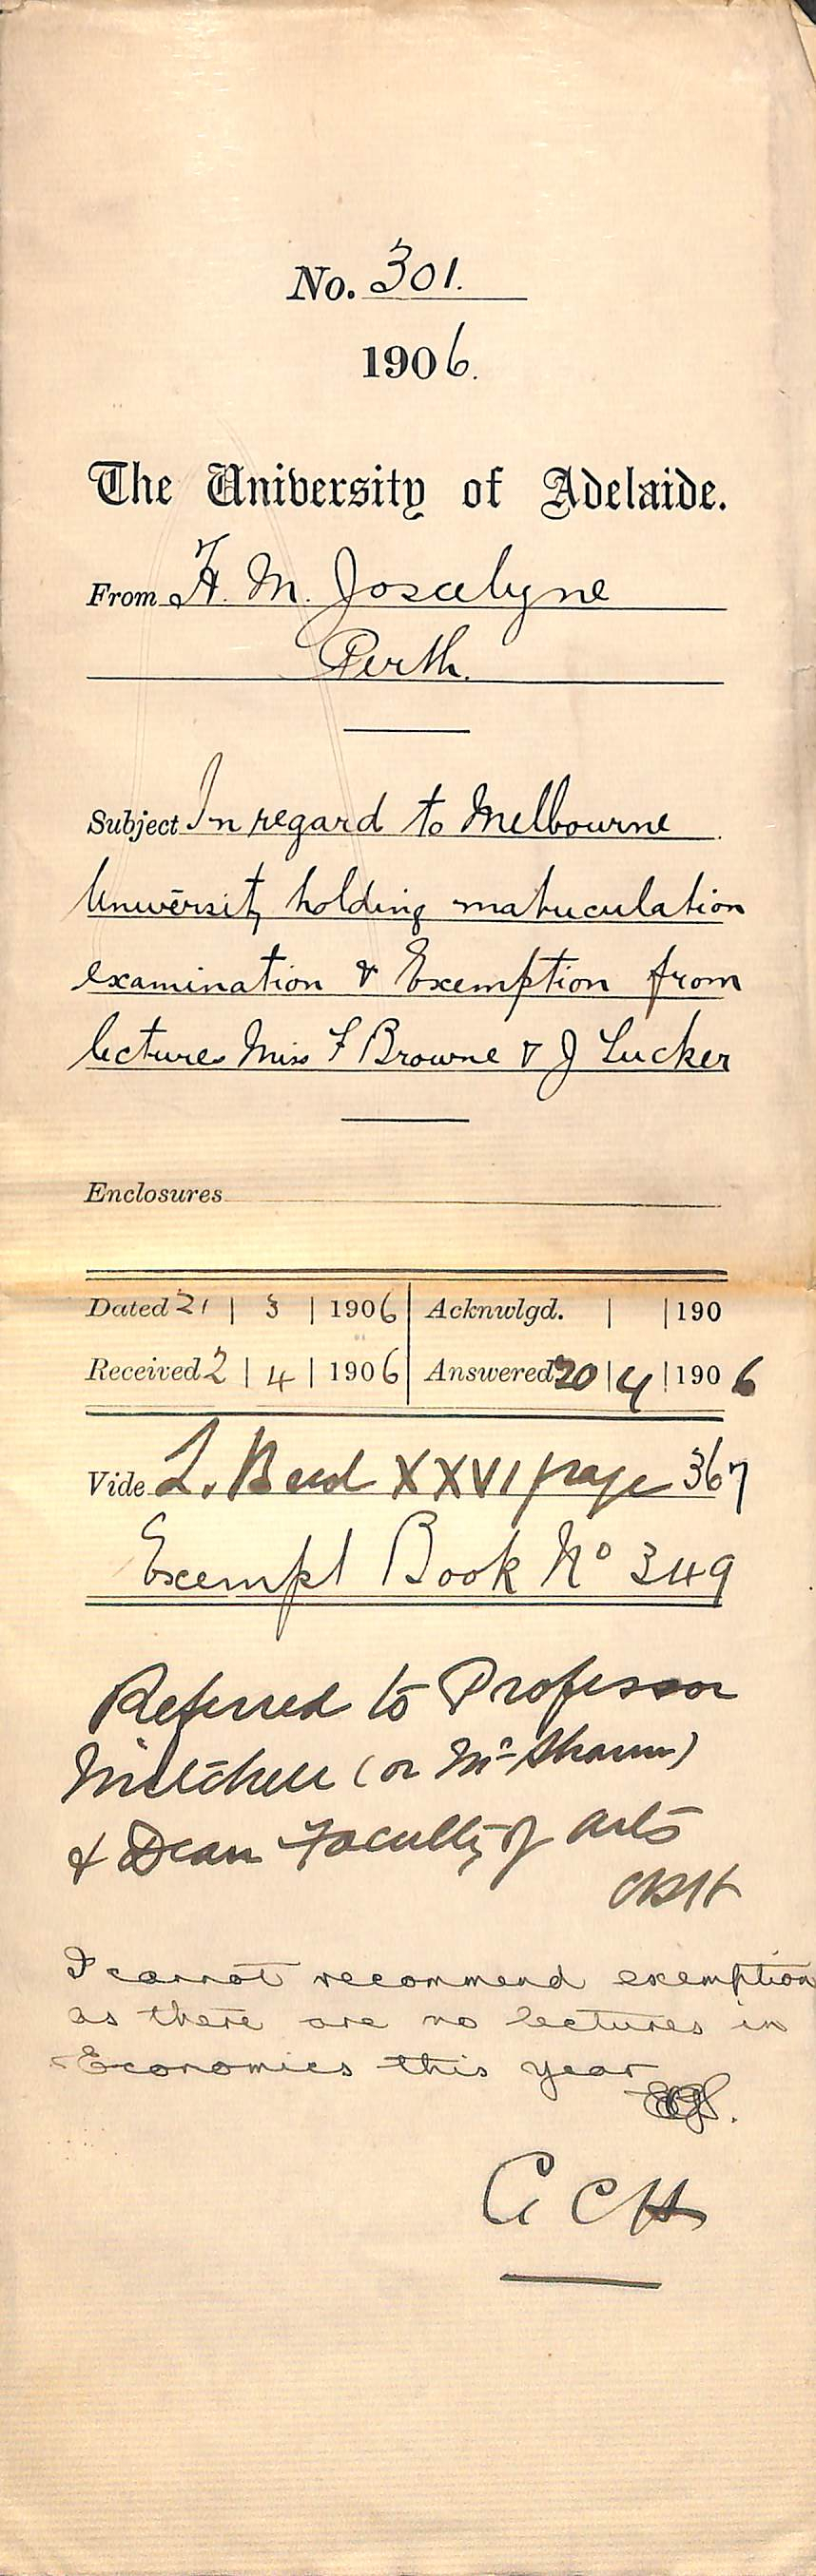 No. 301.
1906.
The University of Adelaide.
From H. M. Joscelyne
Perth.
Subject In regard to Melbourne
University holding matriculation
examination & Exemption from
lectures Miss F Browne & J Tucker
Enclosures
Dated 21 | 3 | 1906 Acknwlgd. | |190
Received 2 | 4 | 1906 Answered 20 | 4 | 1906
Vide L. Book XXVI page 367
Exempt Book No 349
Referred to Professor
Mitchell (or Mr )
& Dean Faculty of Arts
I cannot recommend exemption
as there are no lectures in
Economics this year